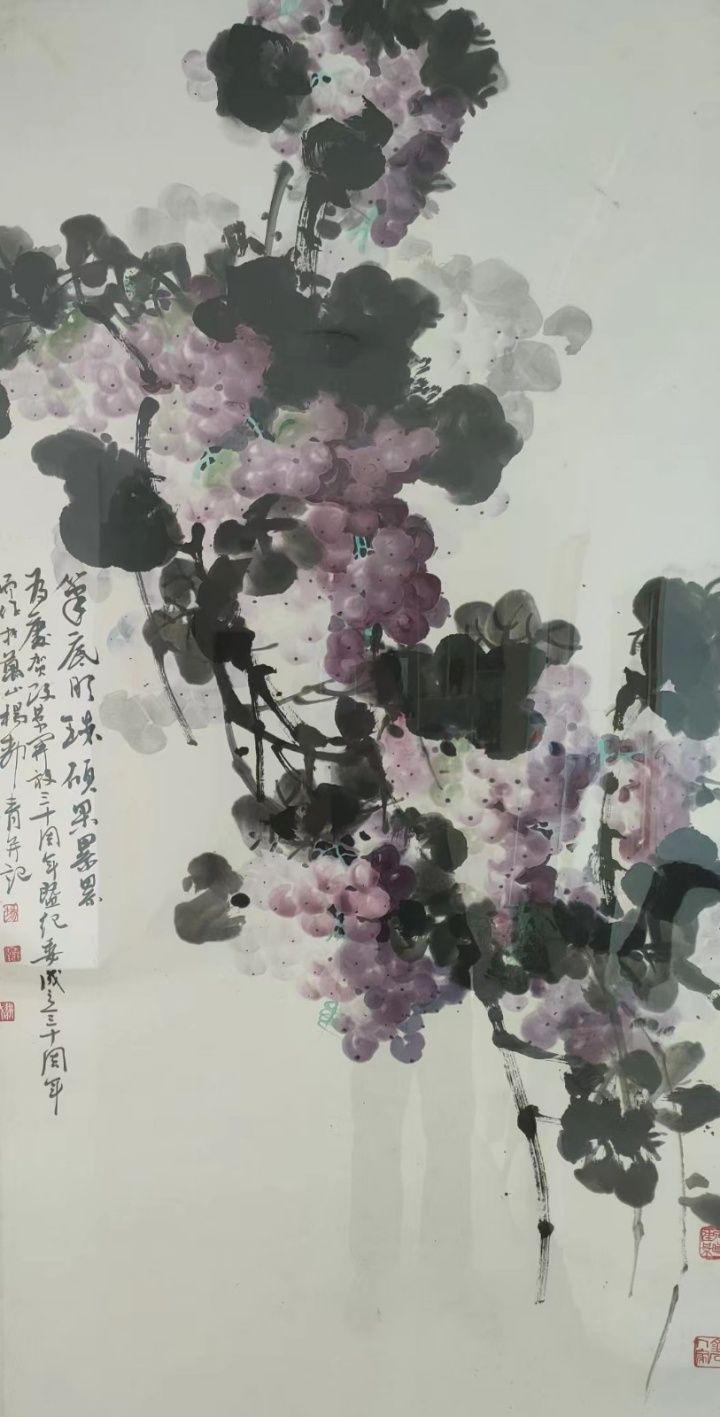 笔底明珠硕果累累
为庆贺改革开放三十周年暨纪委成立三十周年
而作于萬山楊邨青并记